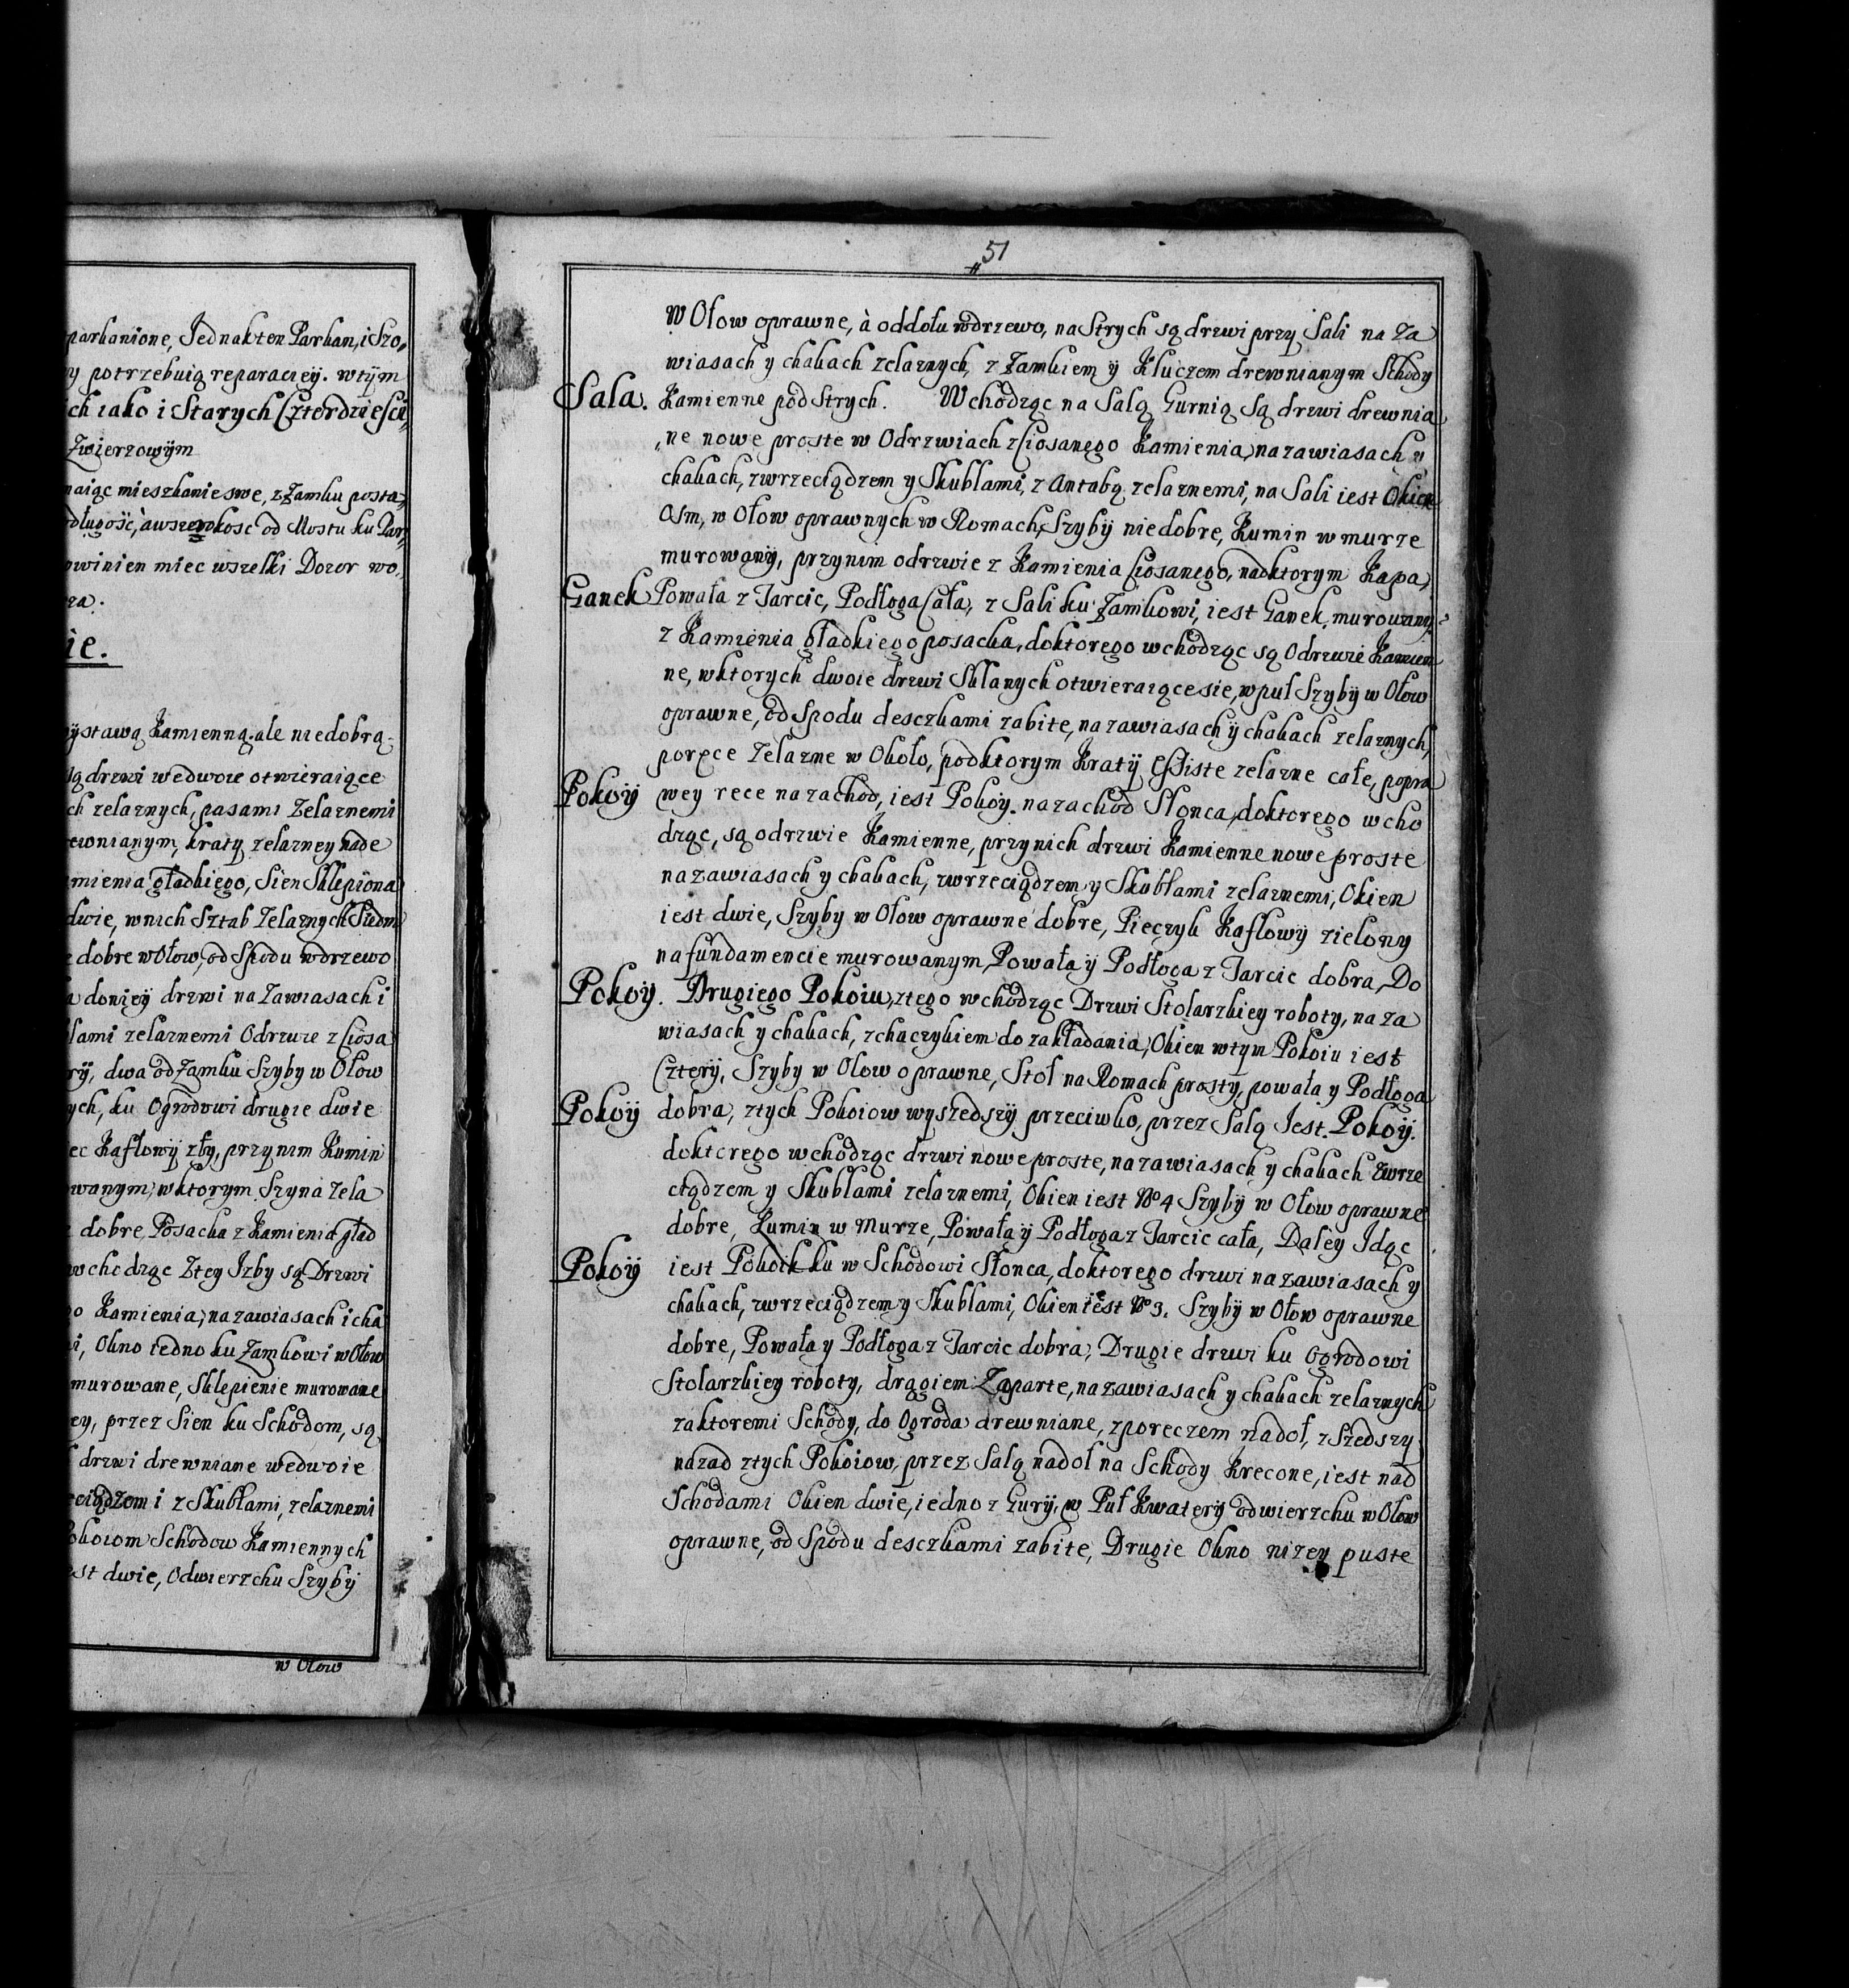 parkanione, Jednak ten Parkan, i Szo„
y potrzebuią reparacyey. wtÿm
ich iako i Starych Czterdzieści,
Zwierzowÿm
maiąc mieszkanie swe, z Zamku posta„
długość, à wszerokosc od Mostu ku Par„
owinien miec wszelki Dozor wo„
za.
ie.
ÿstawą Kamienną. ale niedobrą.
są drzwi wedwoie otwieraiące
ch zelaznych, pasami Zelaznemi
ewnianym, kraty zelazney nade
mienia gładkiego, Sien Sklepiona
dwie, wnich Sztab Zelaznych Siedm
e dobre w Ołow, od Spodu w drzewo
a doniey drzwi na Zawiasach i
lami zelaznemi Odrzwie z Ciosa
rÿ, dwa od Zamku Szyby w Ołow
ych, ku Ogrodowi drugie dwie
ec Kaflowÿ zły, przy nim Kumin
owanym, wktorym Szyna Zela
e dobre, Posacka z Kamienia gład
wchodząc Ztey Izby są Drzwi
o Kamienia, na zawiasach i cha
i, Okno iedno ku Zamkowi w Ołow
murowane, Sklepienie murowane
ey, przez Sien ku Schodom, są
drzwi drewniane wedwoie
eciądzem i z Skublami, zelaznemi
okoiom Schodow Kamiennych
est dwie, Odwierzchu Szybÿ
w Ołow
51
w Ołow oprawne, à oddołu w drzewo, na Strych są drzwi przy Sali na Za
wiasach y chakach zelaznych, z Zamkiem ÿ Kluczem drewnianym Schody
Sala. Kamienne pod Strych. Wchodząc na Salą Gurnią Są drzwi drewnia
„ne nowe proste w Odrzwiach z Ciosanego Kamienia, na zawiasach y
chakach, zwrzeciądzem y Skublami, z Antabą zelaznemi, na Sali iest Okien
Osm, w Ołow oprawnych w Romach, Szybÿ niedobre, Kumin w murze
murowanÿ, przynim odrzwie z Kamienia Ciosanego, nadktorym Kapa,
Ganek Powała z Tarcic, Podłoga Cała, z Sali ku Zamkowi, iest Ganek, murowany
z Kamienia gładkiego posacka, doktorego wchodząc są Odrzwie Kamien
ne, wktorych dwoie drzwi Sklanych otwieraiące sie, w puł Szybÿ w Ołow
oprawne, od Spodu desczkami zabite, na zawiasach ÿ chakach zelaznych,
poręce Zelazne w Około, podktorym Kratÿ Essiste zelazne całe, popra
Pokoÿ wey rece na zachod, iest Pokoy na zachod Słonca, doktorego wcho
dząc, są odrzwie Kamienne, przynich drzwi Kamienne nowe proste
nazawiasach y chakach, zwrzeciądzem y Skubłami zelaznemi, Okien
iest dwie, Szyby w Ołow oprawne dobre, Pieczyk Kaflowÿ zielony
na fundamencie murowanym, Powała ÿ Podłoga z Tarcic dobra, Do
Pokoÿ. Drugiego Pokoiu, ztego wchodząc Drzwi Stolarzkiey roboty, na za
wiasach y chakach, z chaczykiem do zakładania, Okien wtym Pokoiu iest
Czterÿ, Szyby w Ołow oprawne, Stoł na Romach prosty, powała y Podłoga
Pokoÿ dobra, ztych Pokoiow wyszedszÿ przeciwko, przez Salą Jest. Pokoÿ.
doktorego wchodząc drzwi nowe proste, na zawiasach y chakach zwrze
ciądzem y Skublami zelaznemi, Okien iest No 4 Szybÿ w Ołow oprawne
dobre, Kumin w Murze, Powała ÿ Podłoga z Tarcic cała, Daley Idąc
Pokoÿ iest Pokoik ku w Schodowi Słonca, doktorego drzwi na zawiasach y
chakach, zwrzeciądzem y Skublami, Okien iest No 3. Szybÿ w Ołow oprawne
dobre, Powała y Podłoga z Tarcic dobra, Drugie drzwi ku Ogrodowi
Stolarzkiey roboty, drągiem Zaparte, na zawiasach y chakach zelaznych
zaktoremi Schody, do Ogroda drewniane, z poreczem nadoł, z Szedszy
nazad ztych Pokoiow, przez Salą nadoł na Schody Krecone, iest nad
Schodami Okien dwie, iedno z Gurÿ, w Puł Kwaterÿ odwierzchu w Ołow
oprawne, od Spodu desczkami zabite, Drugie Okno nizey puste